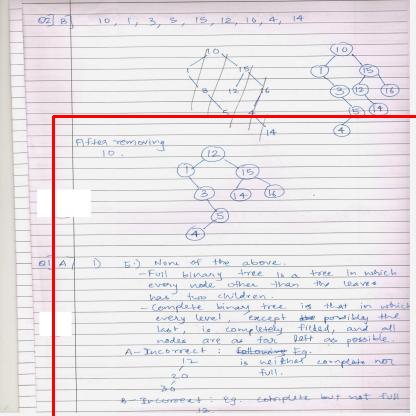 Q2] B] 10, 1, 3, 5, 15, 12, 16, 4, 14
10 10
1 15 1 15
3 12 16 3 12 16
5 4 5 14
14 4
After removing
10. 12
1 15
3 14 16
5
4
Q1] A] 1) E.) None of the above.
- Full binary tree is a tree in which
every node other than the leaves
has two children.
- Complete binary tree is that in which
every level, except possibly the
last, is completely filled, and all
nodes are as far left as possible.
A - Incorrect : following Eg.
12 is neither complete nor
20 full.
30
B - Incorrect : Eg. complete but not full
12